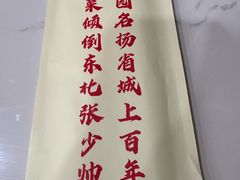 园名扬省城上百年
菜倾倒东北张少帅